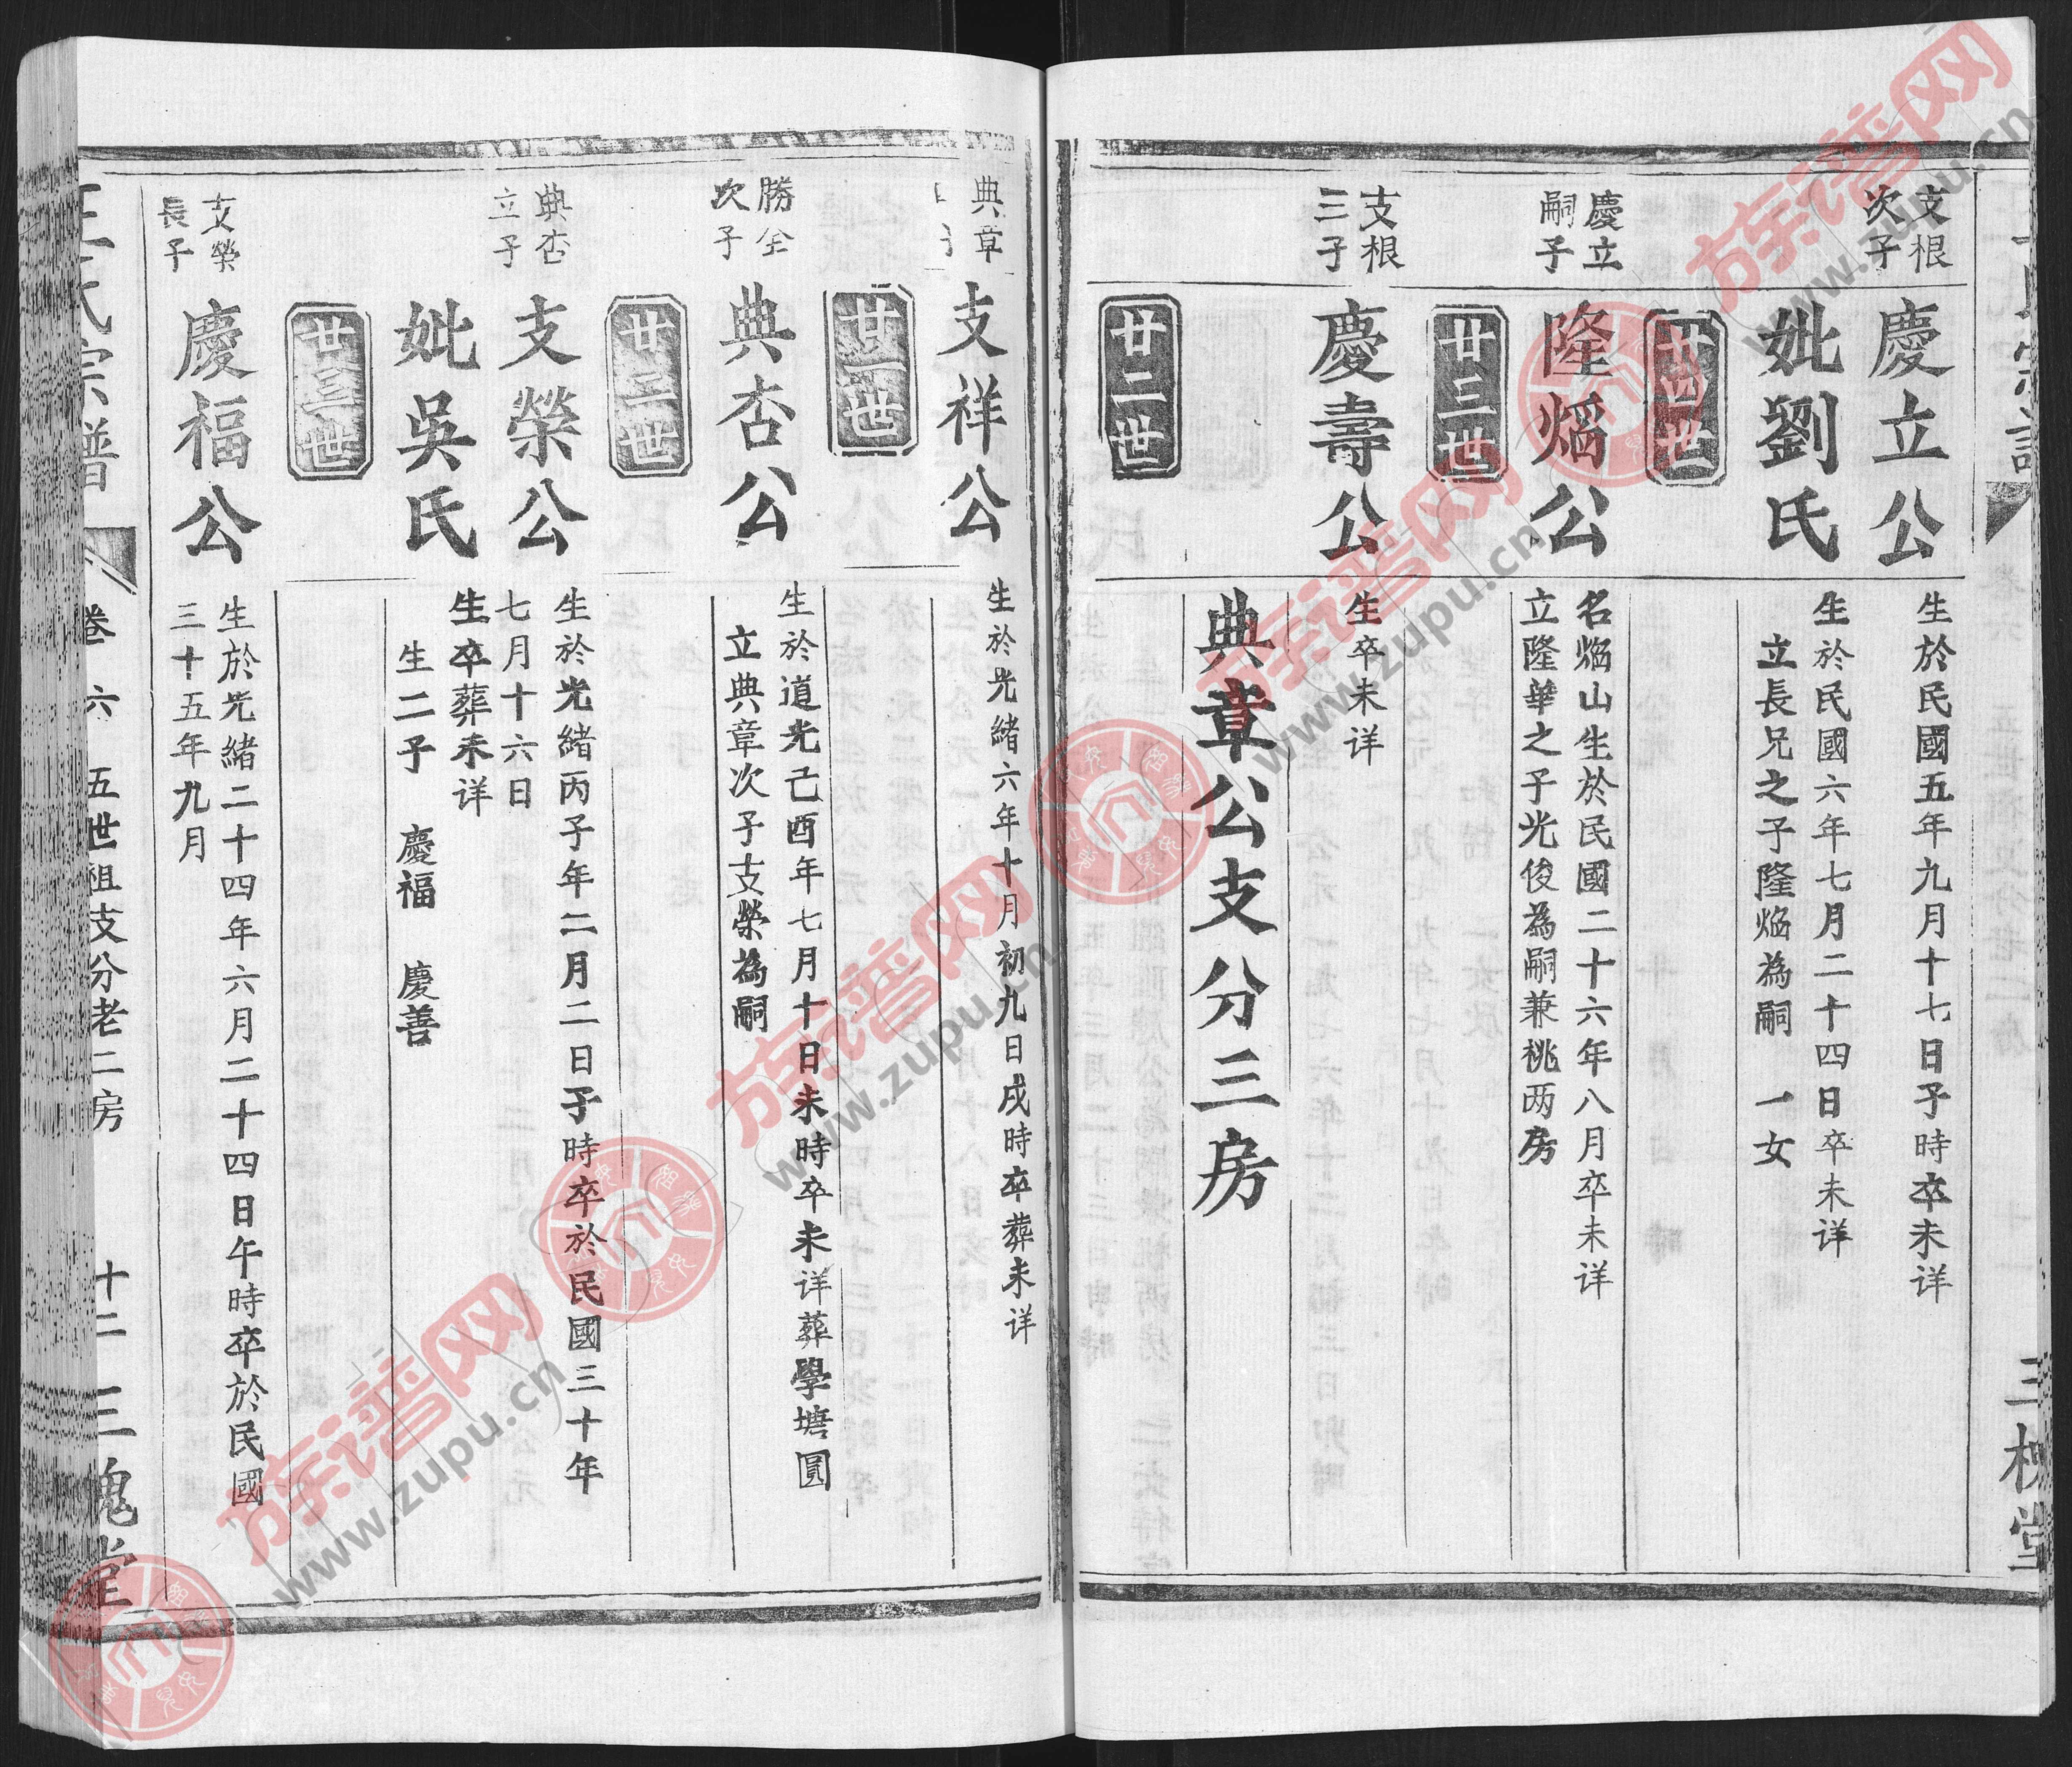 支根
次子
慶立公
生於民國五年九月十七日子時卒未详
妣劉氏
生於民國六年七月二十四日卒未详
立長兄之子隆焰為嗣　一女
廿四世
慶立
嗣子
隆焰公
名焰山生於民國二十六年八月卒未详
立隆華之子光俊為嗣兼桃两房
廿三世
支根
三子
慶壽公
生卒未详
典章公支分三房
廿二世
典章
支祥公
生於光緒六年十月初九日戌時卒葬未详
廿一世
勝全
次子
典杏公
生於道光己酉年七月十日未時卒未详葬學塘圓
立典章次子支榮為嗣
廿二世
典杏
立子
支榮公
生於光緒丙子年二月二日子時卒於民國三十年
七月十六日
妣吳氏
生卒葬未详
生二子　慶福　慶善
廿三世
支榮
長子
慶福公
生於光緒二十四年六月二十四日午時卒於民國
三十五年九月
王氏宗譜
卷六　五世祖支分老二房
十二
三槐堂
三槐堂
族谱网
www.zupu.cn
族谱网
www.zupu.cn
族谱网
www.zupu.cn
族谱网
www.zupu.cn